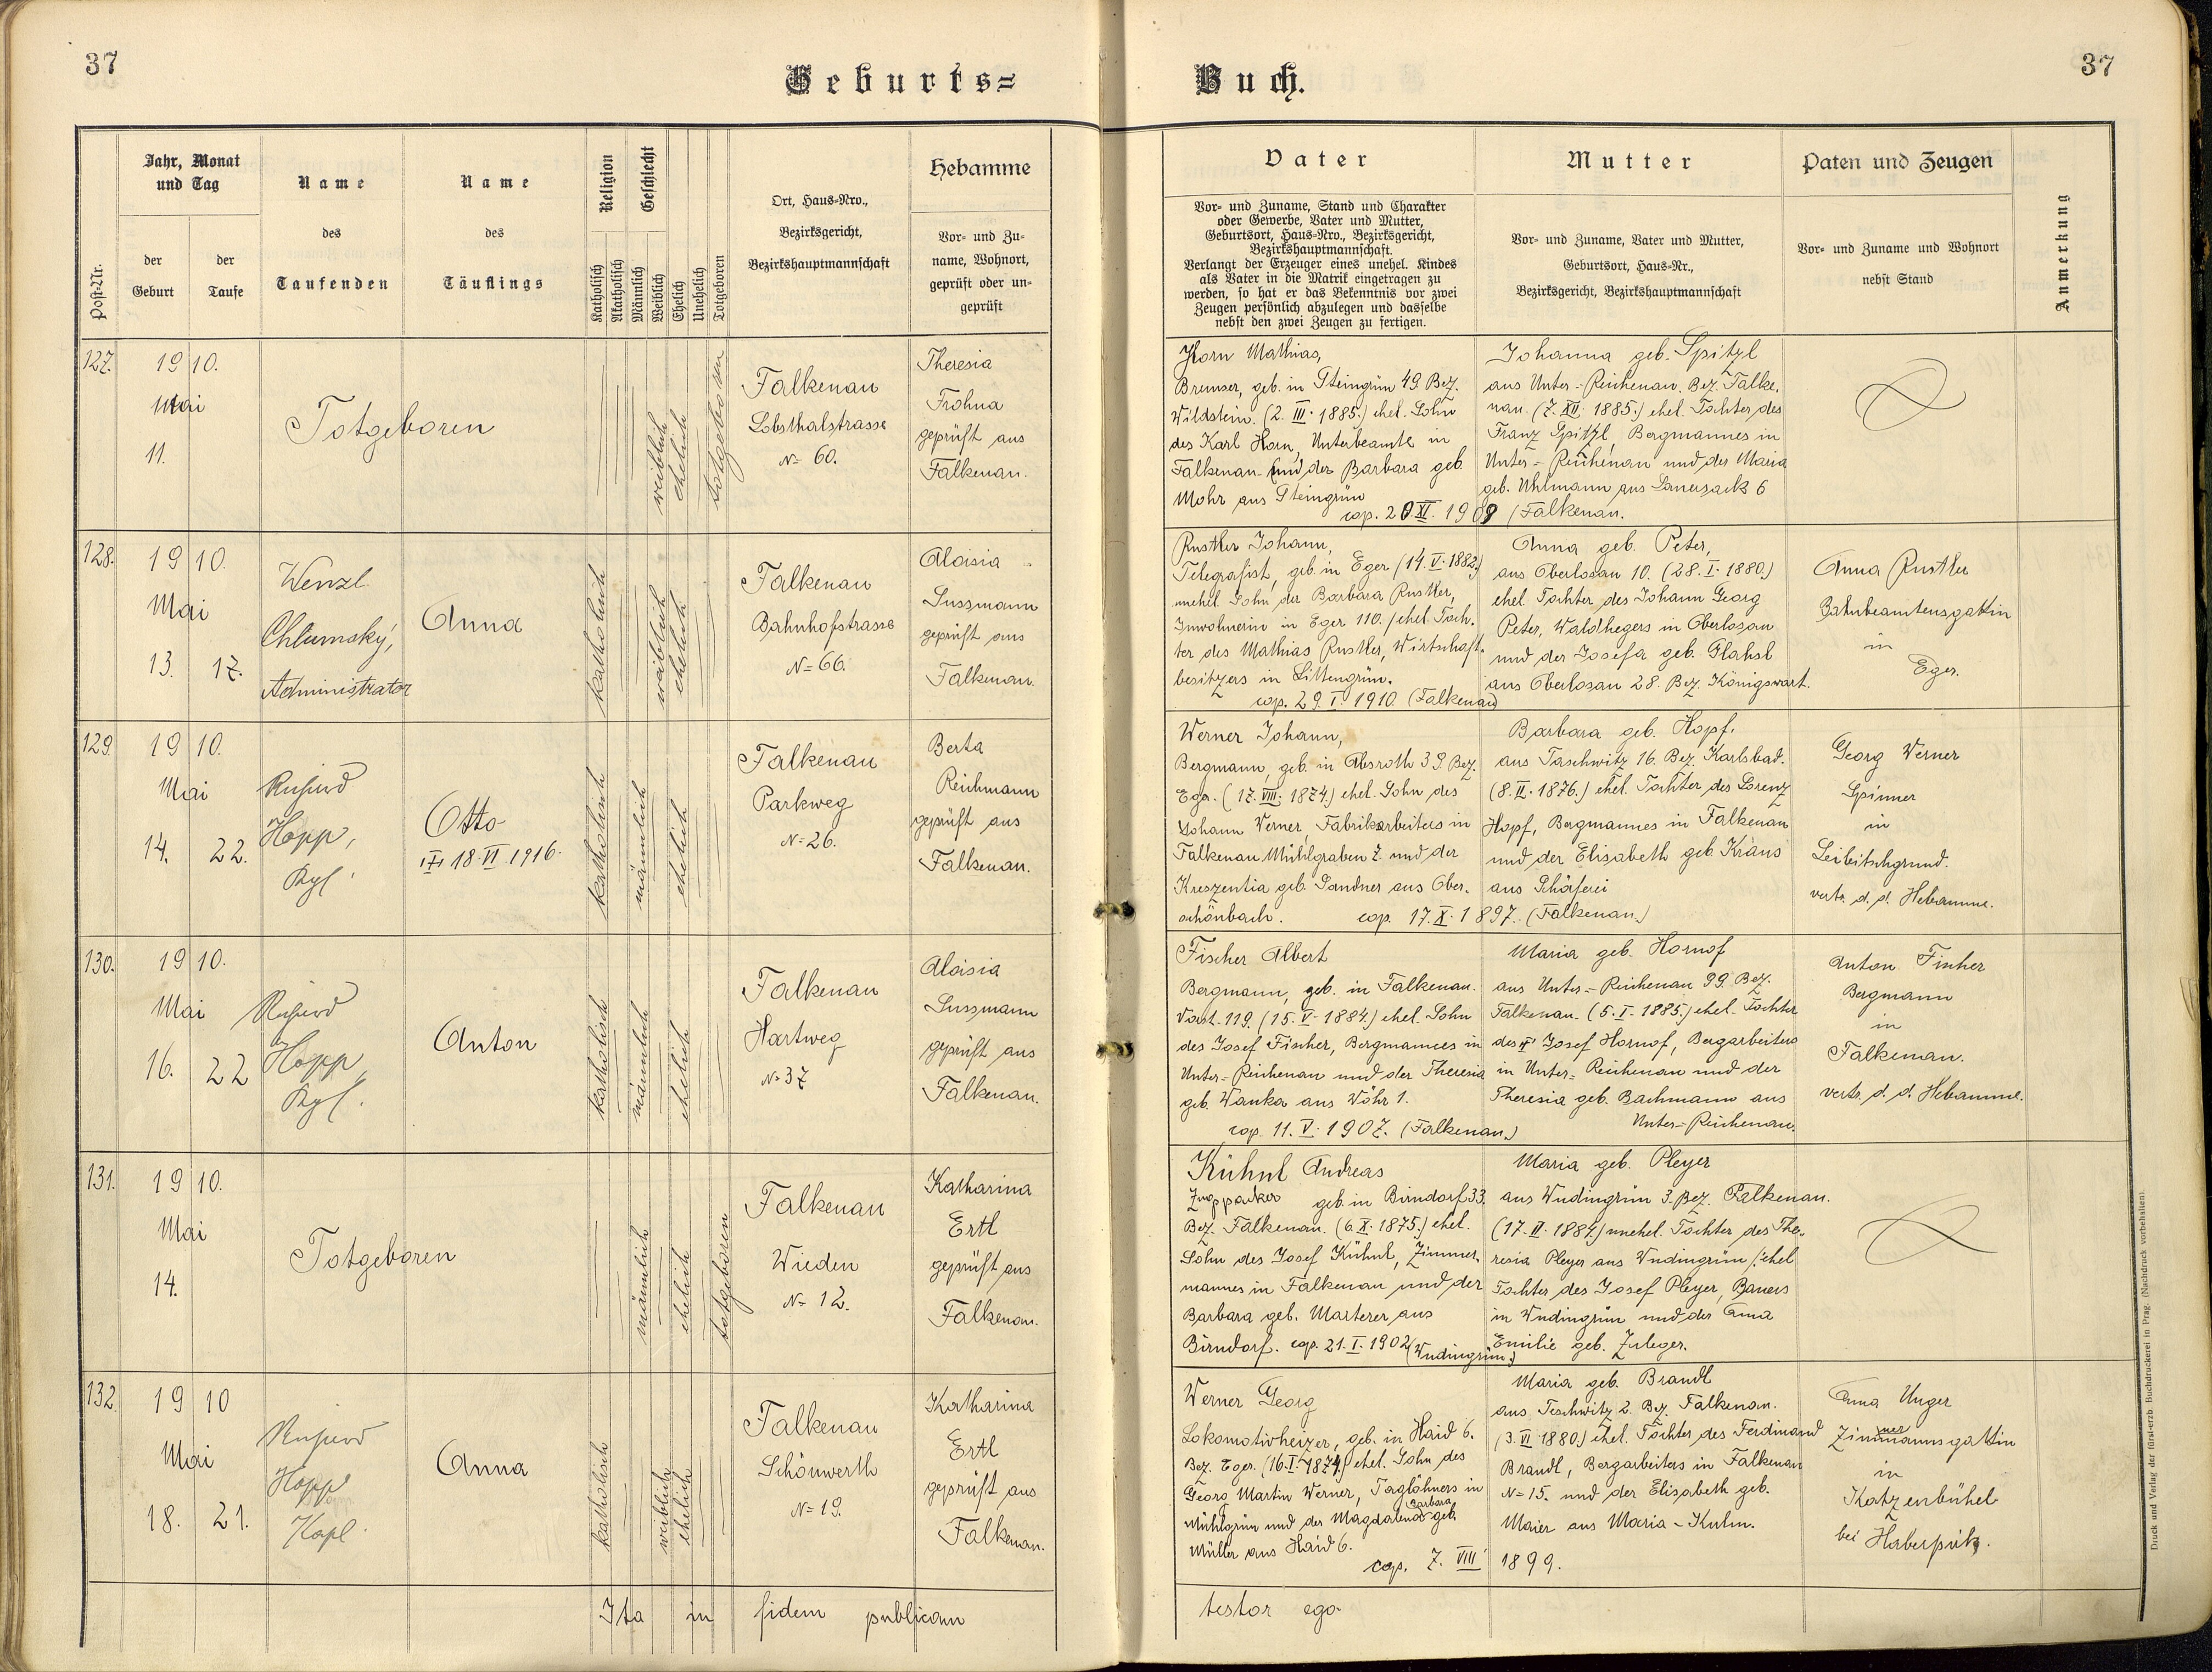 37
Geburts=
Buch.
37
Post-Nr.
Jahr, Monat
und Tag
der
Geburt
der
Taufe
Name
des
Taufenden
Name
des
Täuflings
Religion
Katholisch
Akatholisch
Geschlecht
Männlich
Weiblich
Ehelich
Unehelich
Totgeboren
Ort, Haus-Nro.,
Bezirksgericht,
Bezirkshauptmannschaft
Hebamme
Vor- und Zu-
name, Wohnort,
geprüft oder un-
geprüft
Vater
Vor- und Zuname, Stand und Charakter
oder Gewerbe, Vater und Mutter,
Geburtsort, Haus-Nro., Bezirksgericht,
Bezirkshauptmannschaft.
Verlangt der Erzeuger eines unehel. Kindes
als Vater in die Matrik eingetragen zu
werden, so hat er das Bekenntnis vor zwei
Zeugen persönlich abzulegen und dasselbe
nebst den zwei Zeugen zu fertigen.
Mutter
Vor- und Zuname, Vater und Mutter,
Geburtsort, Haus-Nr.,
Bezirksgericht, Bezirkshauptmannschaft
Paten und Zeugen
Vor- und Zuname und Wohnort
nebst Stand
Anmerkung
127.
1910.
Mai
11.
Totgeboren
weiblich
ehelich
totgeboren
Falkenau
Lobsthalstrasse
No 60.
Theresia
Frohna
geprüft aus
Falkenau.
Horn Mathias,
Bremser, geb. in Steingrün 49 Bez.
Wildstein. (2. III. 1885.) ehel. Sohn
des Karl Horn, Unterbeamte in
Falkenau und der Barbara geb.
Mohr aus Steingrün
cop. 20. XI. 1909 (Falkenau.
Johanna geb. Spitzl
aus Unter-Reichenau. Bez. Falke.
nau. (7. XII. 1885.) ehel. Tochter des
Franz Spitzl, Bergmannes in
Unter-Reichenau und der Maria
geb. Uhlmann aus Lauersack 6
128.
1910.
Mai
13. 17.
Wenzl
Chlumský,
Administrator
Anna
katholisch
weiblich
ehelich
Falkenau
Bahnhofstrasse
No 66.
Aloisia
Sussmann
geprüft aus
Falkenau.
Rustler Johann,
Telegrafist, geb. in Eger (14. V. 1882.)
unehel. Sohn der Barbara Rustler,
Inwohnerin in Eger 110. / ehel. Toch.
ter des Mathias Rustler, Wirtschaft.
besitzers in Littengrün.
cop. 29. I. 1910. (Falkenau)
Anna geb. Peter,
aus Oberlosau 10. (28. I. 1880.)
ehel. Tochter des Johann Georg
Peter, Waldhegers in Oberlosau
und der Josefa geb.
aus Oberlosau 28. Bez. Königswart.
Anna Rustler
Bahnbeamtensgattin
in
Eger.
129.
1910.
Mai
14. 22.
Hopp,
Otto
18. VI. 1916.
katholisch
männlich
ehelich
Falkenau
Parkweg
No 26.
Berta
Reichmann
geprüft aus
Falkenau.
Werner Johann,
Bergmann, geb. in Absroth 39 Bez.
Eger. (17. VIII. 1874.) ehel. Sohn des
Johann Werner, Fabrikarbeiters in
Falkenau Mühlgraben 7. und der
Kreszentia geb. Sandner aus Ober.
schönbach. cop. 17. X. 1897. (Falkenau.)
Barbara geb. Hopf.
aus Taschwitz 16. Bez. Karlsbad.
(8. II. 1876.) ehel. Tochter des Lorenz
Hopf, Bergmannes in Falkenau
und der Elisabeth geb. Kraus
aus Schäferei
Georg Werner
Spinner
in
Leibitschgrund.
vertr. d. d. Hebamme.
130.
1910.
Mai
16. 22
Hopp
Anton
katholisch
männlich
ehelich
Falkenau
Hartweg
No 37
Aloisia
Sussmann
geprüft aus
Falkenau.
Fischer Albert
Bergmann, geb. in Falkenau.
Vorst. 119. (15. V. 1884.) ehel. Sohn
des Josef Fischer, Bergmannes in
Unter-Reichenau und der Theresia
geb. Wanka aus Wöhr 1.
cop. 11. V. 1907. (Falkenau.)
Maria geb. Hornof
aus Unter-Reichenau 99 Bez.
Falkenau. (5. I. 1885.) ehel. Tochter
des Josef Hornof, Bergarbeiters
in Unter-Reichenau und der
Theresia geb. Bachmann aus
Unter-Reichenau.
Anton Fischer
Bergmann
in
Falkenau.
vertr. d. d. Hebamme.
131.
1910.
Mai
14.
Totgeboren
männlich
ehelich
totgeboren
Falkenau
Wieden
No 12.
Katharina
Ertl
geprüft aus
Falkenau.
Kühnl Andreas
geb. in Birndorf 33
Bez. Falkenau. (6. X. 1875.) ehel.
Sohn des Josef Kühnl, Zimmer.
mannes in Falkenau und der
Barbara geb. Marterer aus
Birndorf. cop. 21. I. 1902 (Wudingrün.)
Maria geb. Pleyer
aus Wudingrün 3. Bez. Falkenau.
(17. II. 1884.) unehel. Tochter des The.
resia Pleyer aus Wudingrün /: ehel
Tochter des Josef Pleyer, Bauers
in Wudingrün und der Anna
Emilie geb. Zuleger.
132.
1910
Mai
18. 21.
Hopp
Kapl.
Anna
katholisch
weiblich
ehelich
Falkenau
Schönwerth
No 19.
Katharina
Ertl
geprüft aus
Falkenau.
Werner Georg
Lokomotivheizer, geb. in Haid 6.
Bez. Eger. (16. I. 1874.) ehel. Sohn des
Georg Martin Werner, Taglöhners in
Mühlgrün und der Magdalena Barbara geb.
Müller aus Haid 6.
cop. 7. VIII 1899.
Maria geb. Brandl
aus Teschwitz 2. Bez. Falkenau.
(3. VI. 1880.) ehel. Tochter des Ferdinand
Brandl, Bergarbeiters in Falkenau
No 15. und der Elisabeth geb.
Maier aus Maria-Kulm.
Anna Unger
Zimmermannsgattin
in
Katzenbühel
bei Haberspirk.
Ita in fidem publicam
testor ego.
Druck und Verlag der fürst-erzb. Buchdruckerei in Prag. (Nachdruck vorbehalten).